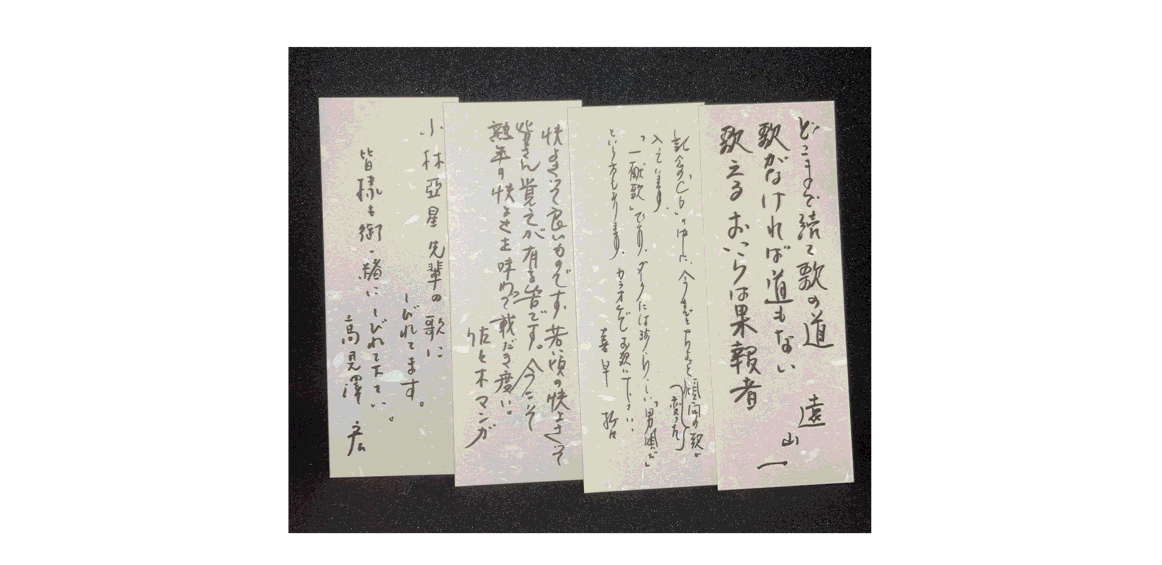 どこまで続く歌の道
歌がなければ道もない
歌えるおいらは果報者
遠山一
記念の「CD」の中に、今までとちょっと傾向の歌が
(変った)
入っています。
「一献歌」であり、ダークには珍らしい「男唄だ」
という方もあります。カラオケでお歌い下さい。
喜早 哲
快よさって良いものです。若い頃の快よさって
皆さん覚えが有る筈です。今こそ
熟年の快よさを味わって戴だき度い。
佐々木マンガ
小林亞星先輩の歌に
しびれてます。
皆様も御一緒にしびれて下さい。
高見澤 宏